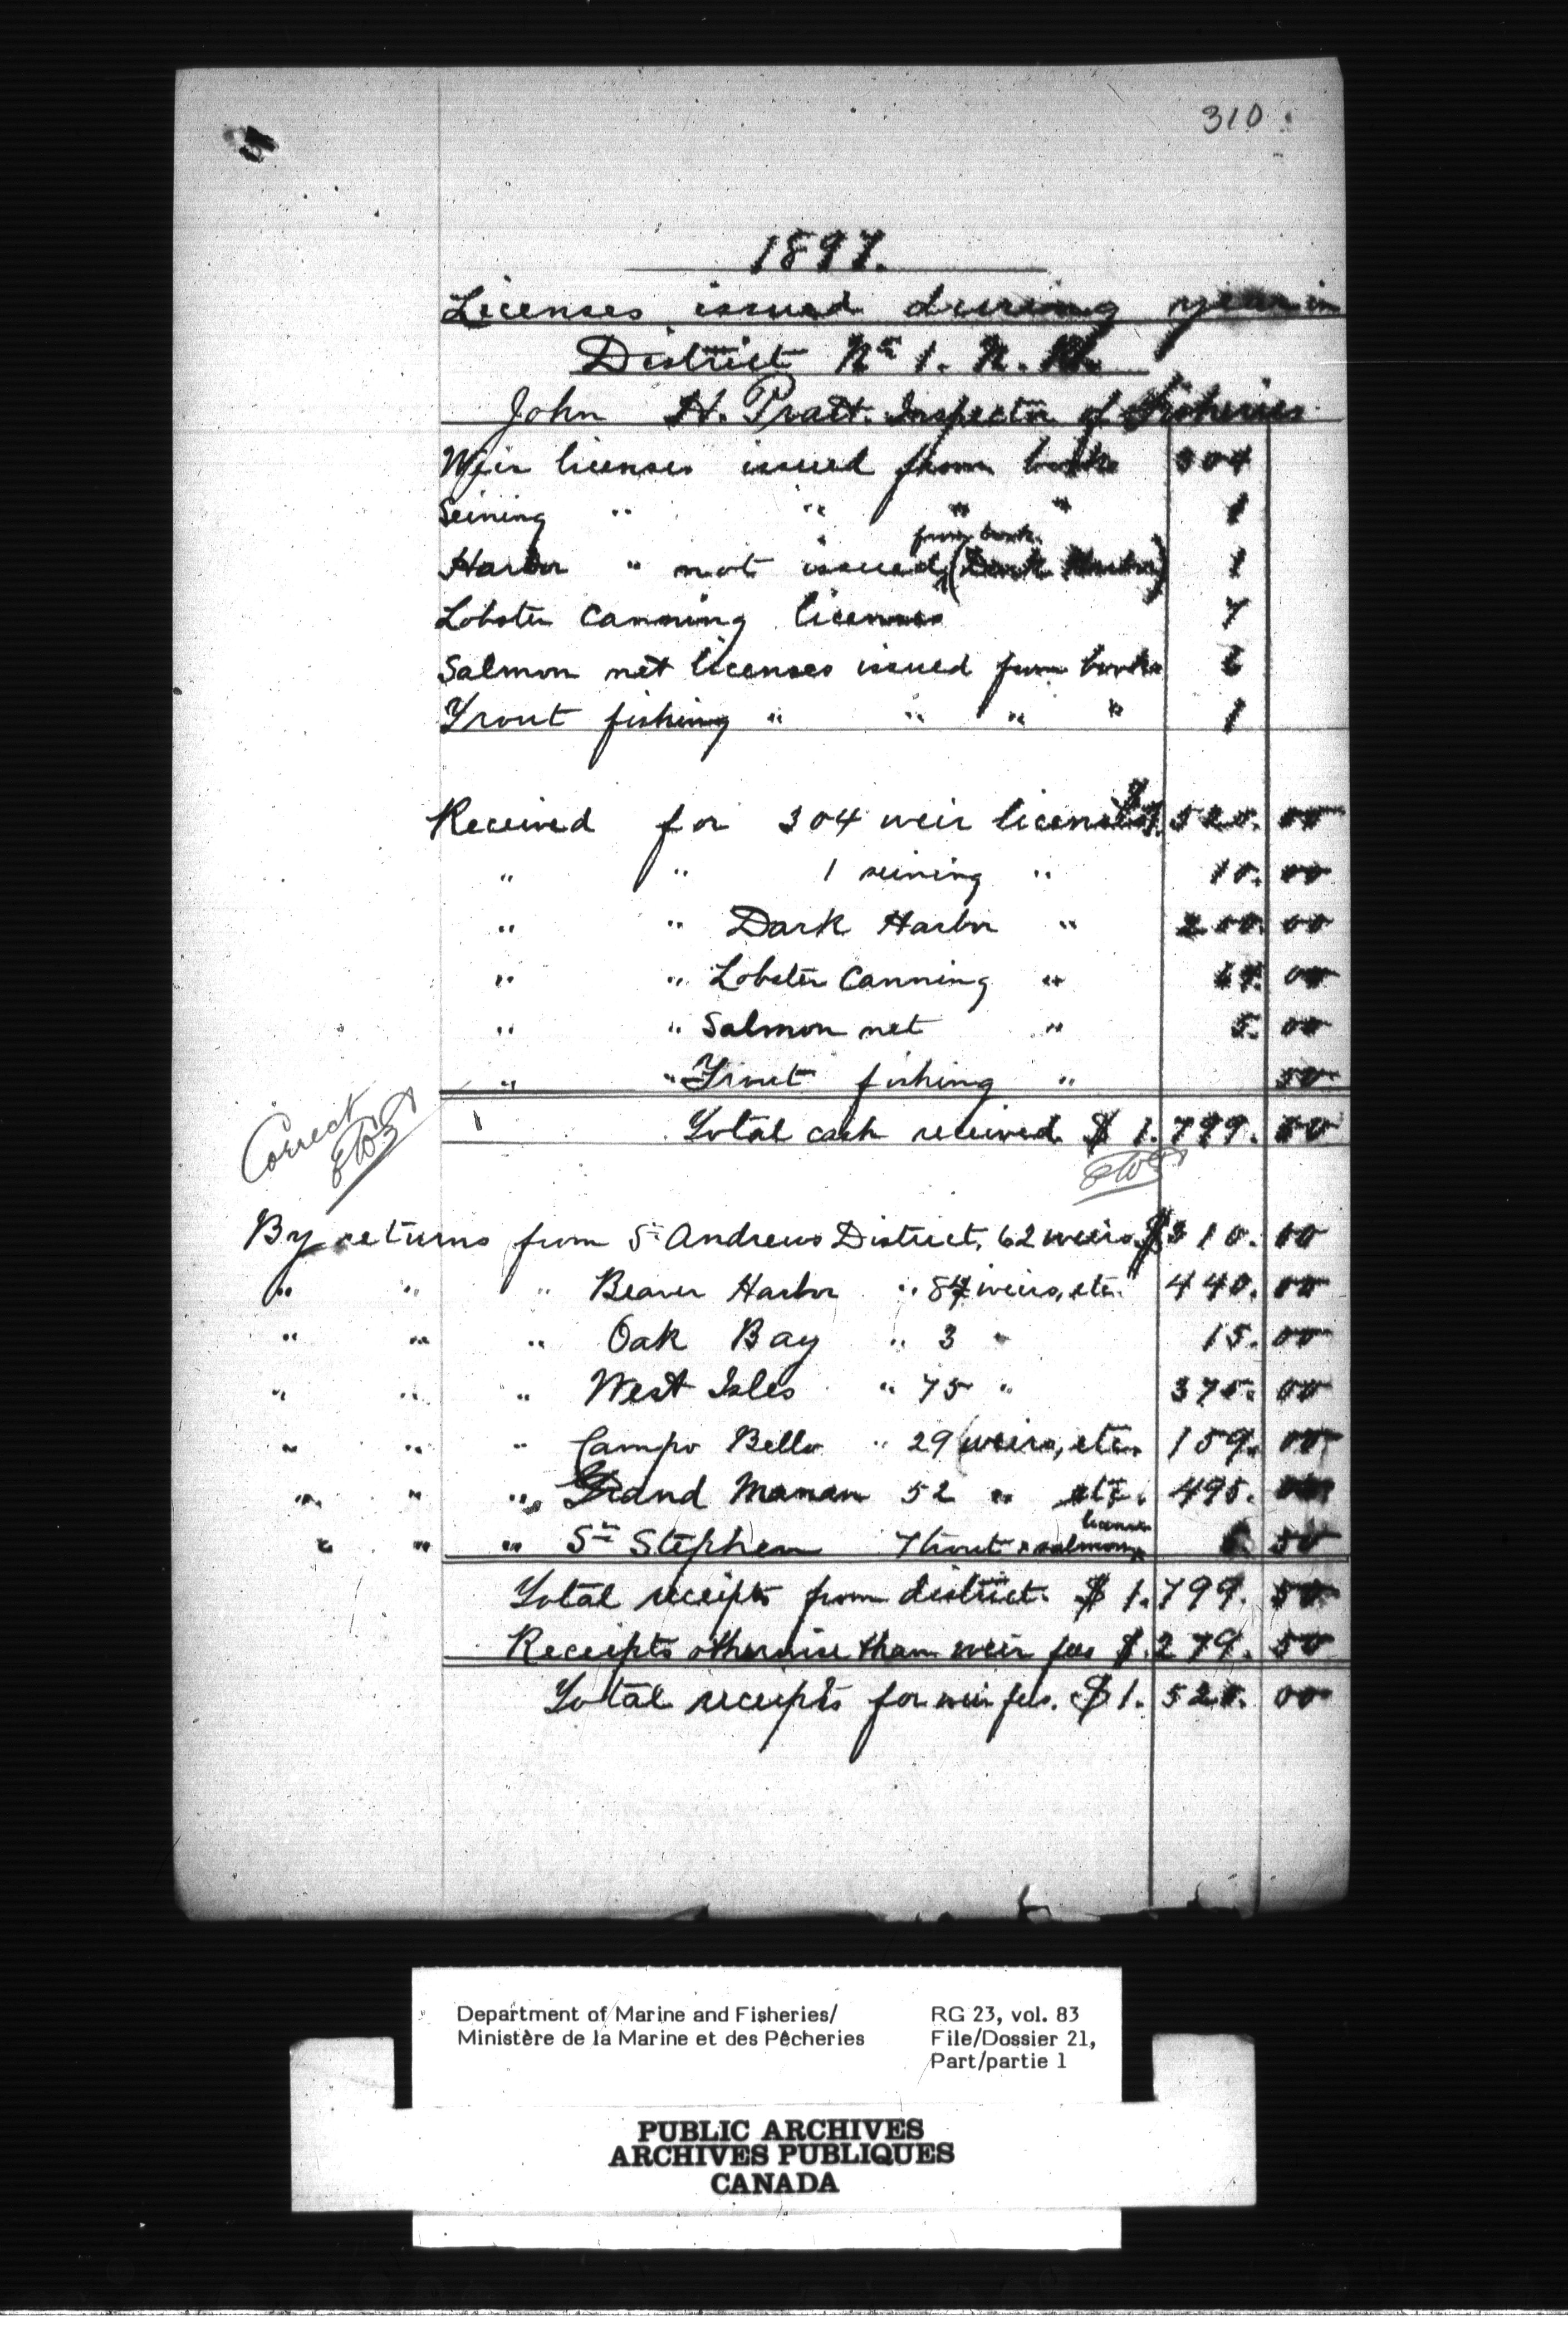 310
1897.
Licenses issued during year in
District No 1. N. B.
John H. Pratt. Inspector of Fisheries
Weir licenses issued from books 304
Seining " " " " 1
from book
Harbor " not issued (Dark Harbor) 1
Lobster Canning licenses 7
Salmon net licenses issued from books 6
Trout fishing " " " " 1
Received for 304 weir licenses $1.520.00
" " 1 seining " 10.00
" " Dark Harbor " 200.00
" " Lobster Canning " 64.00
" " Salmon net " 5.00
" " Trout fishing " 50
Total cash received $1.799.50
Correct
By returns from St Andrews District, 62 weirs. $310.00
" " " Beaver Harbor " 84 weirs, etc. 440.00
" " " Oak Bay " 3 " 15.00
" " " West Isles " 75 " 375.00
" " " Campo Bello " 29 weirs, etc. 159.00
" " " Grand Manan 52 " etc. 495.00
licenses
" " " St Stephen 7 trout & salmon 5.50
Total receipts from district. $1.799.50
Receipts otherwise than weir fees $.279.50
Total receipts for weir fees. $1.520.00
Department of Marine and Fisheries/ RG 23, vol. 83
Ministère de la Marine et des Pêcheries File/Dossier 21,
Part/partie 1
PUBLIC ARCHIVES
ARCHIVES PUBLIQUES
CANADA